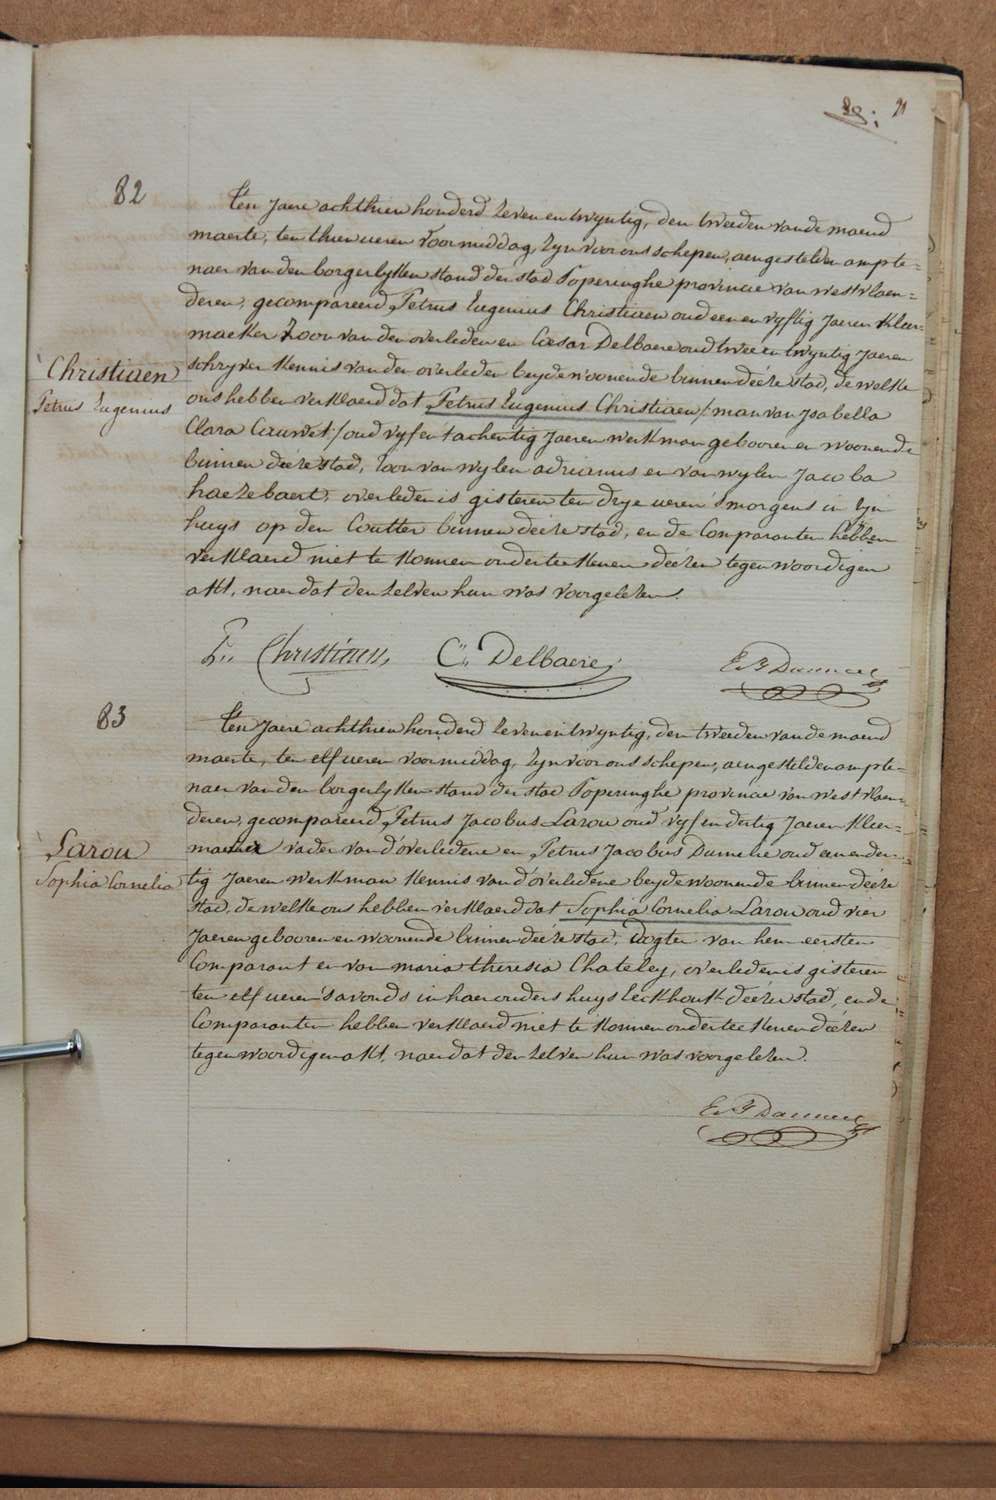 89: 91
82
Ten Jaere achthien honderd zeven en twyntig, den tweeden van de maend
maerte, ten thien ueren voormiddag, zyn voor ons schepen, aengestelden ampte=
naer van den borgerlyken stand der stad Poperinghe provincie van westvlaen=
deren, gecompareerd Petrus Eugenius Christiaen oud een en vyftig Jaeren kleer=
maeker zoon van den overleden en Cæsar Delbaere oud twee en twyntig Jaeren
schryver kennis van den overleden beyde woonende binnen deéze stad, de welke
Christiaen
Petrus Eugenius
ons hebben verklaerd dat Petrus Eugenius Christiaen /: man van Jsabella
Clara Cauwet :/ oud vyf en tachentig Jaeren werkman gebooren en woonende
binnen deéze stad, zoon van wylen adrianus en van wylen Jacoba
haezebaert, overleden is gisteren ten drye ueren s'morgens in zyn
huys op den Coutter binnen deéze stad, en de Comparanten hebben
verklaerd niet te konnen onderteekenen deézen tegenwoordigen
akt, naer dat den zelven hun was voorgelezen.
P.. Christiaen, C.. Delbaere,
83
Ten Jaere achthien honderd zeven en twyntig, den tweeden van de maend
maerte, ten elf ueren voormiddag, zyn voor ons schepen, aengestelden ampte=
naer van den borgerlyken stand der stad Poperinghe provincie van westvlaen=
deren, gecompareerd Petrus Jacobus Larou oud vyf en dertig Jaeren kleer=
maeker vader van d'overledene en Petrus Jacobus Dumelie oud een en der=
Larou
Sophia Cornelia
tig Jaeren werkman kennis van d'overledene beyde woonende binnen deéze
stad, de welke ons hebben verklaerd dat Sophia Cornelia Larou oud vier
Jaeren gebooren en woonende binnen deéze stad, dogter van hem eersten
Comparant en van maria theresia Chateley, overleden is gisteren
ten elf ueren s'avonds in haer ouders huys Eeckhout deézer stad, en de
Comparanten hebben verklaerd niet te konnen onderteekenen deézen
tegenwoordigen akt, naer dat den zelven hun was voorgelezen.